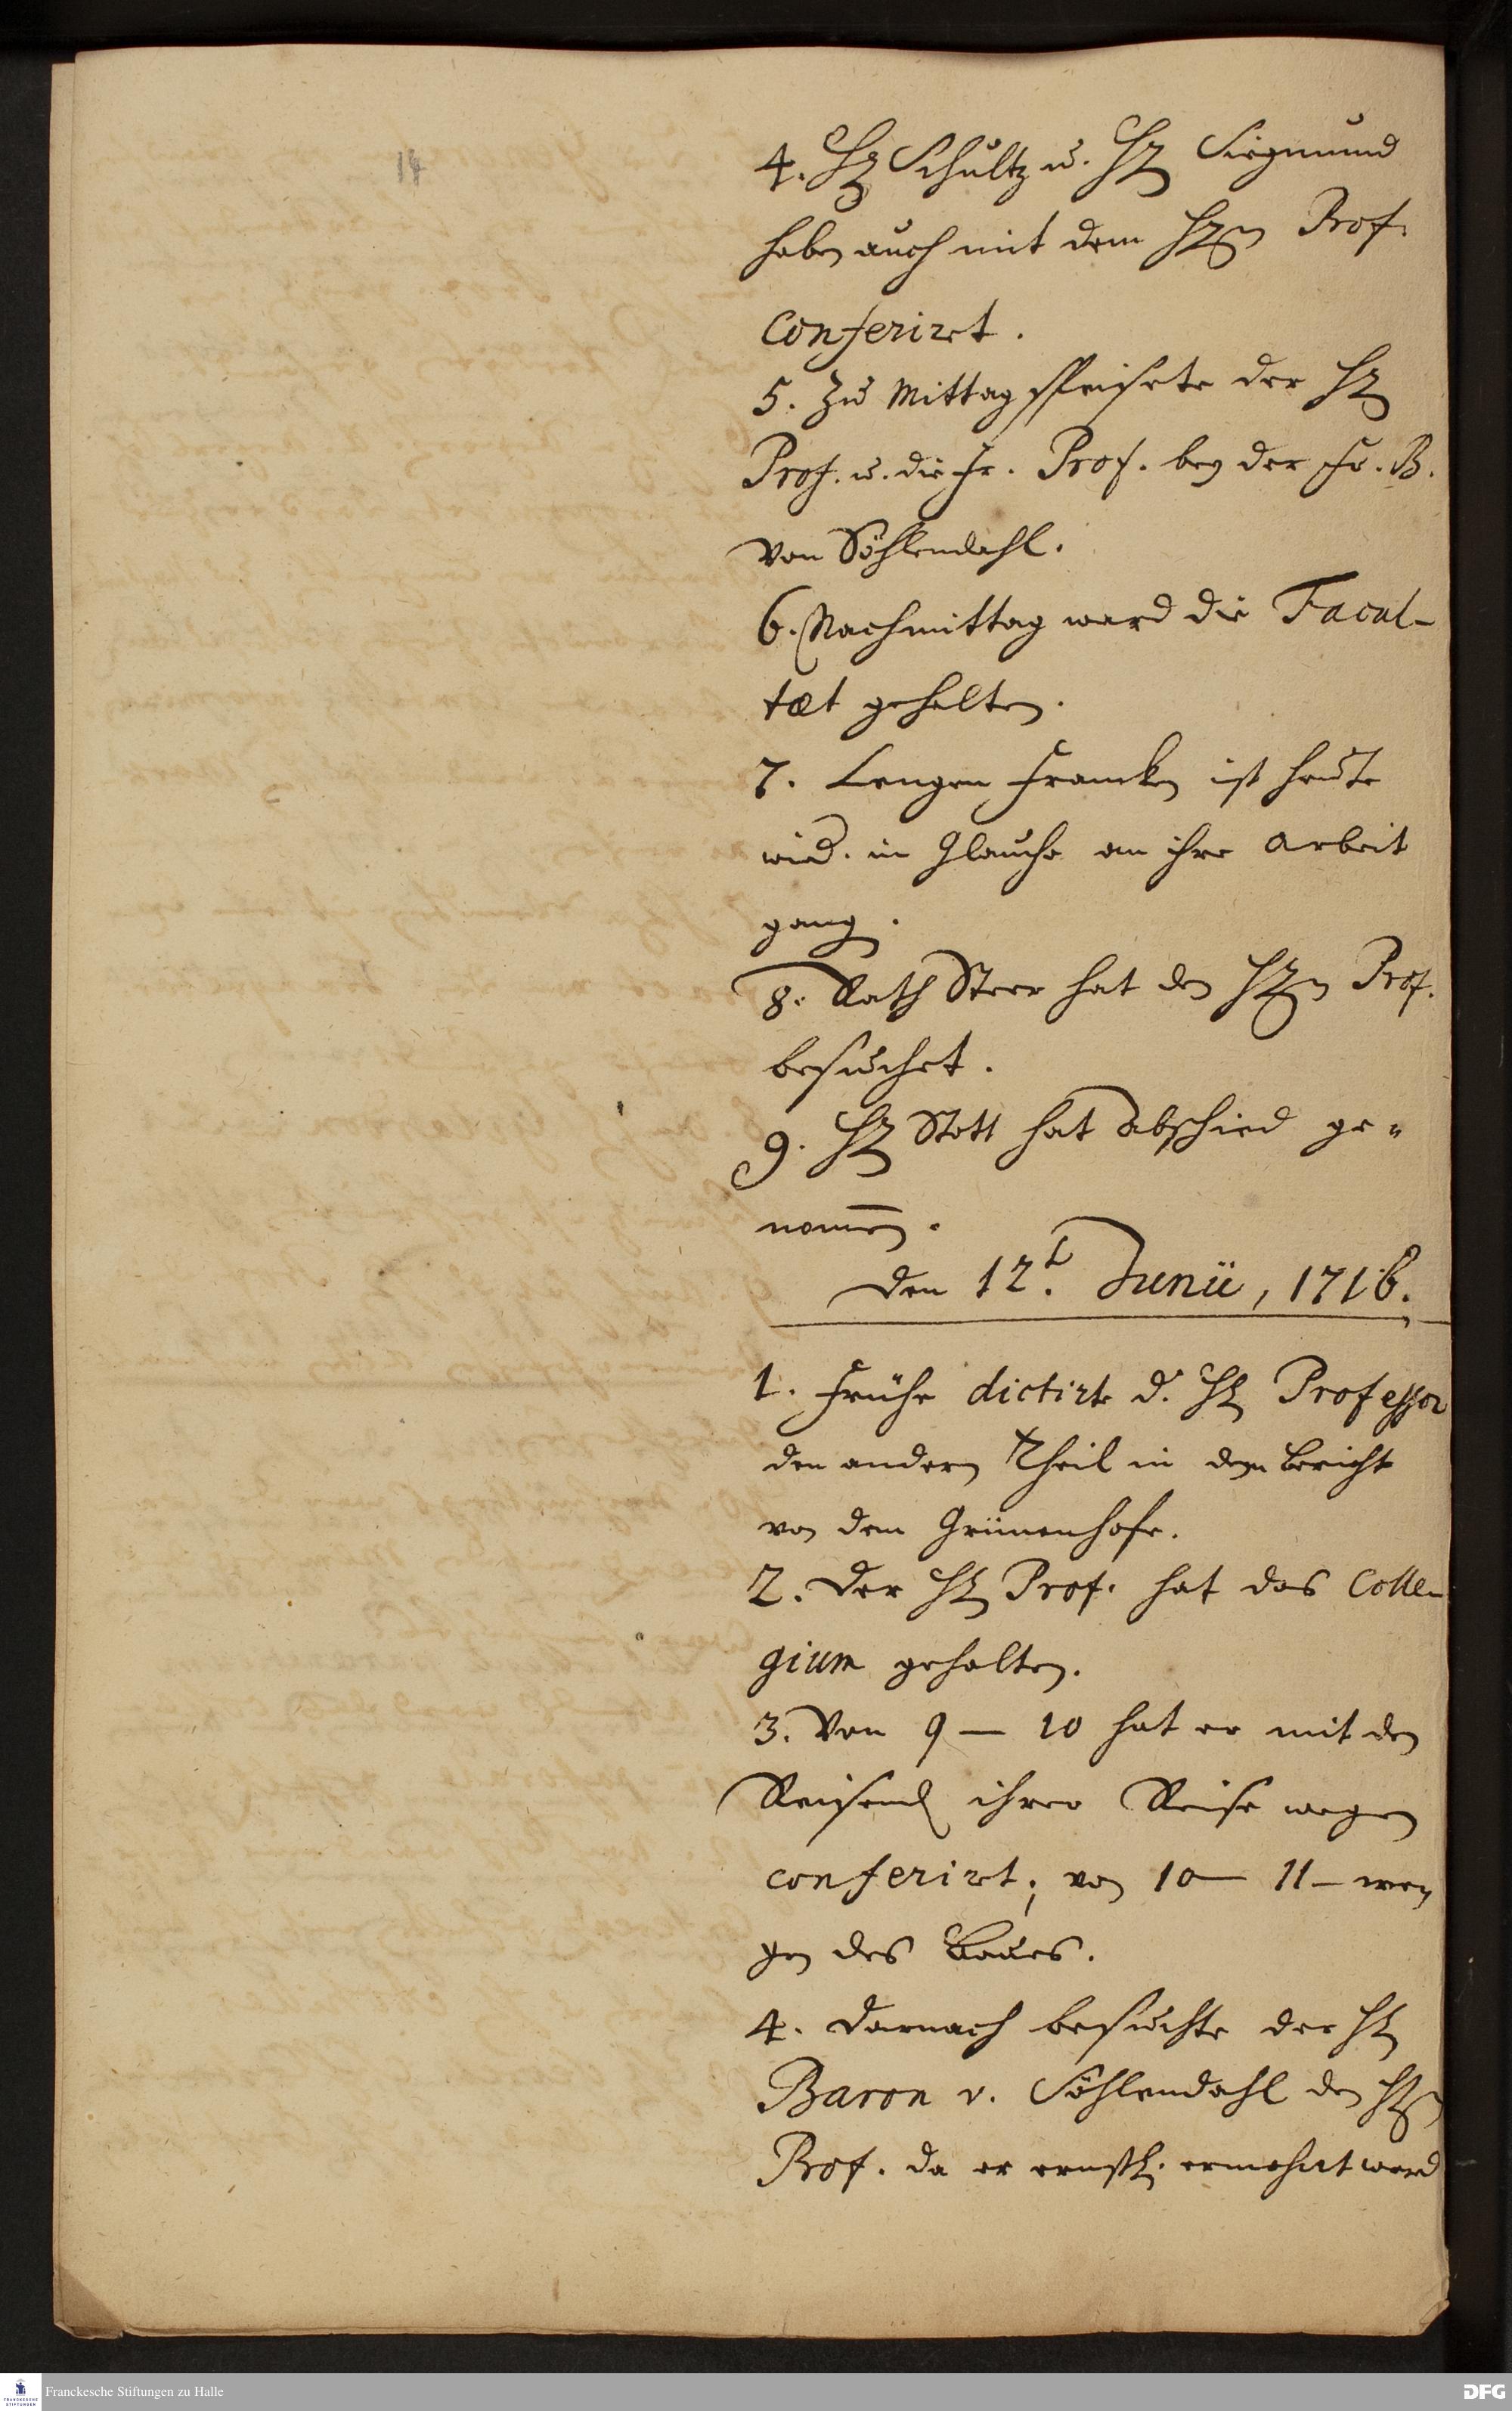 14
4. H. Schultz u. H. Siegmund
haben auch mit dem Hn Prof.
conferiret.
5. Zu Mittag speisete der H.
Prof. u. die Fr. Prof. bey der Fr. B.
von Söhlendahl.
6. Nachmittag ward die Facul-
tæt gehalten.
7. Lengen Francken ist heute
wied. in Glaucha an ihre Arbeit
gang.
8. Rath Steer hat den Hn Prof.
besuchet.
9. H. Stott hat Abschied ge-
nom̄en.
Den 12t. Junii, 1716.
1. Frühe dictirte d. H. Professor
den andern Theil in dem Bericht
von dem Grünenhofe.
2. Der H. Prof. hat das Colle-
gium gehalten.
3. Von 9 – 10 hat er mit den
Reisend ihrer Reise wegen
conferirt; von 10 – 11 – we-
gen des Baues.
4. Darnach besuchte der H.
Baron v. Söhlendahl den Hn
Prof. da er ernstl. ermahnt ward
Franckesche Stiftungen zu Halle
FRANCKESCHE
STIFTUNGEN
DFG